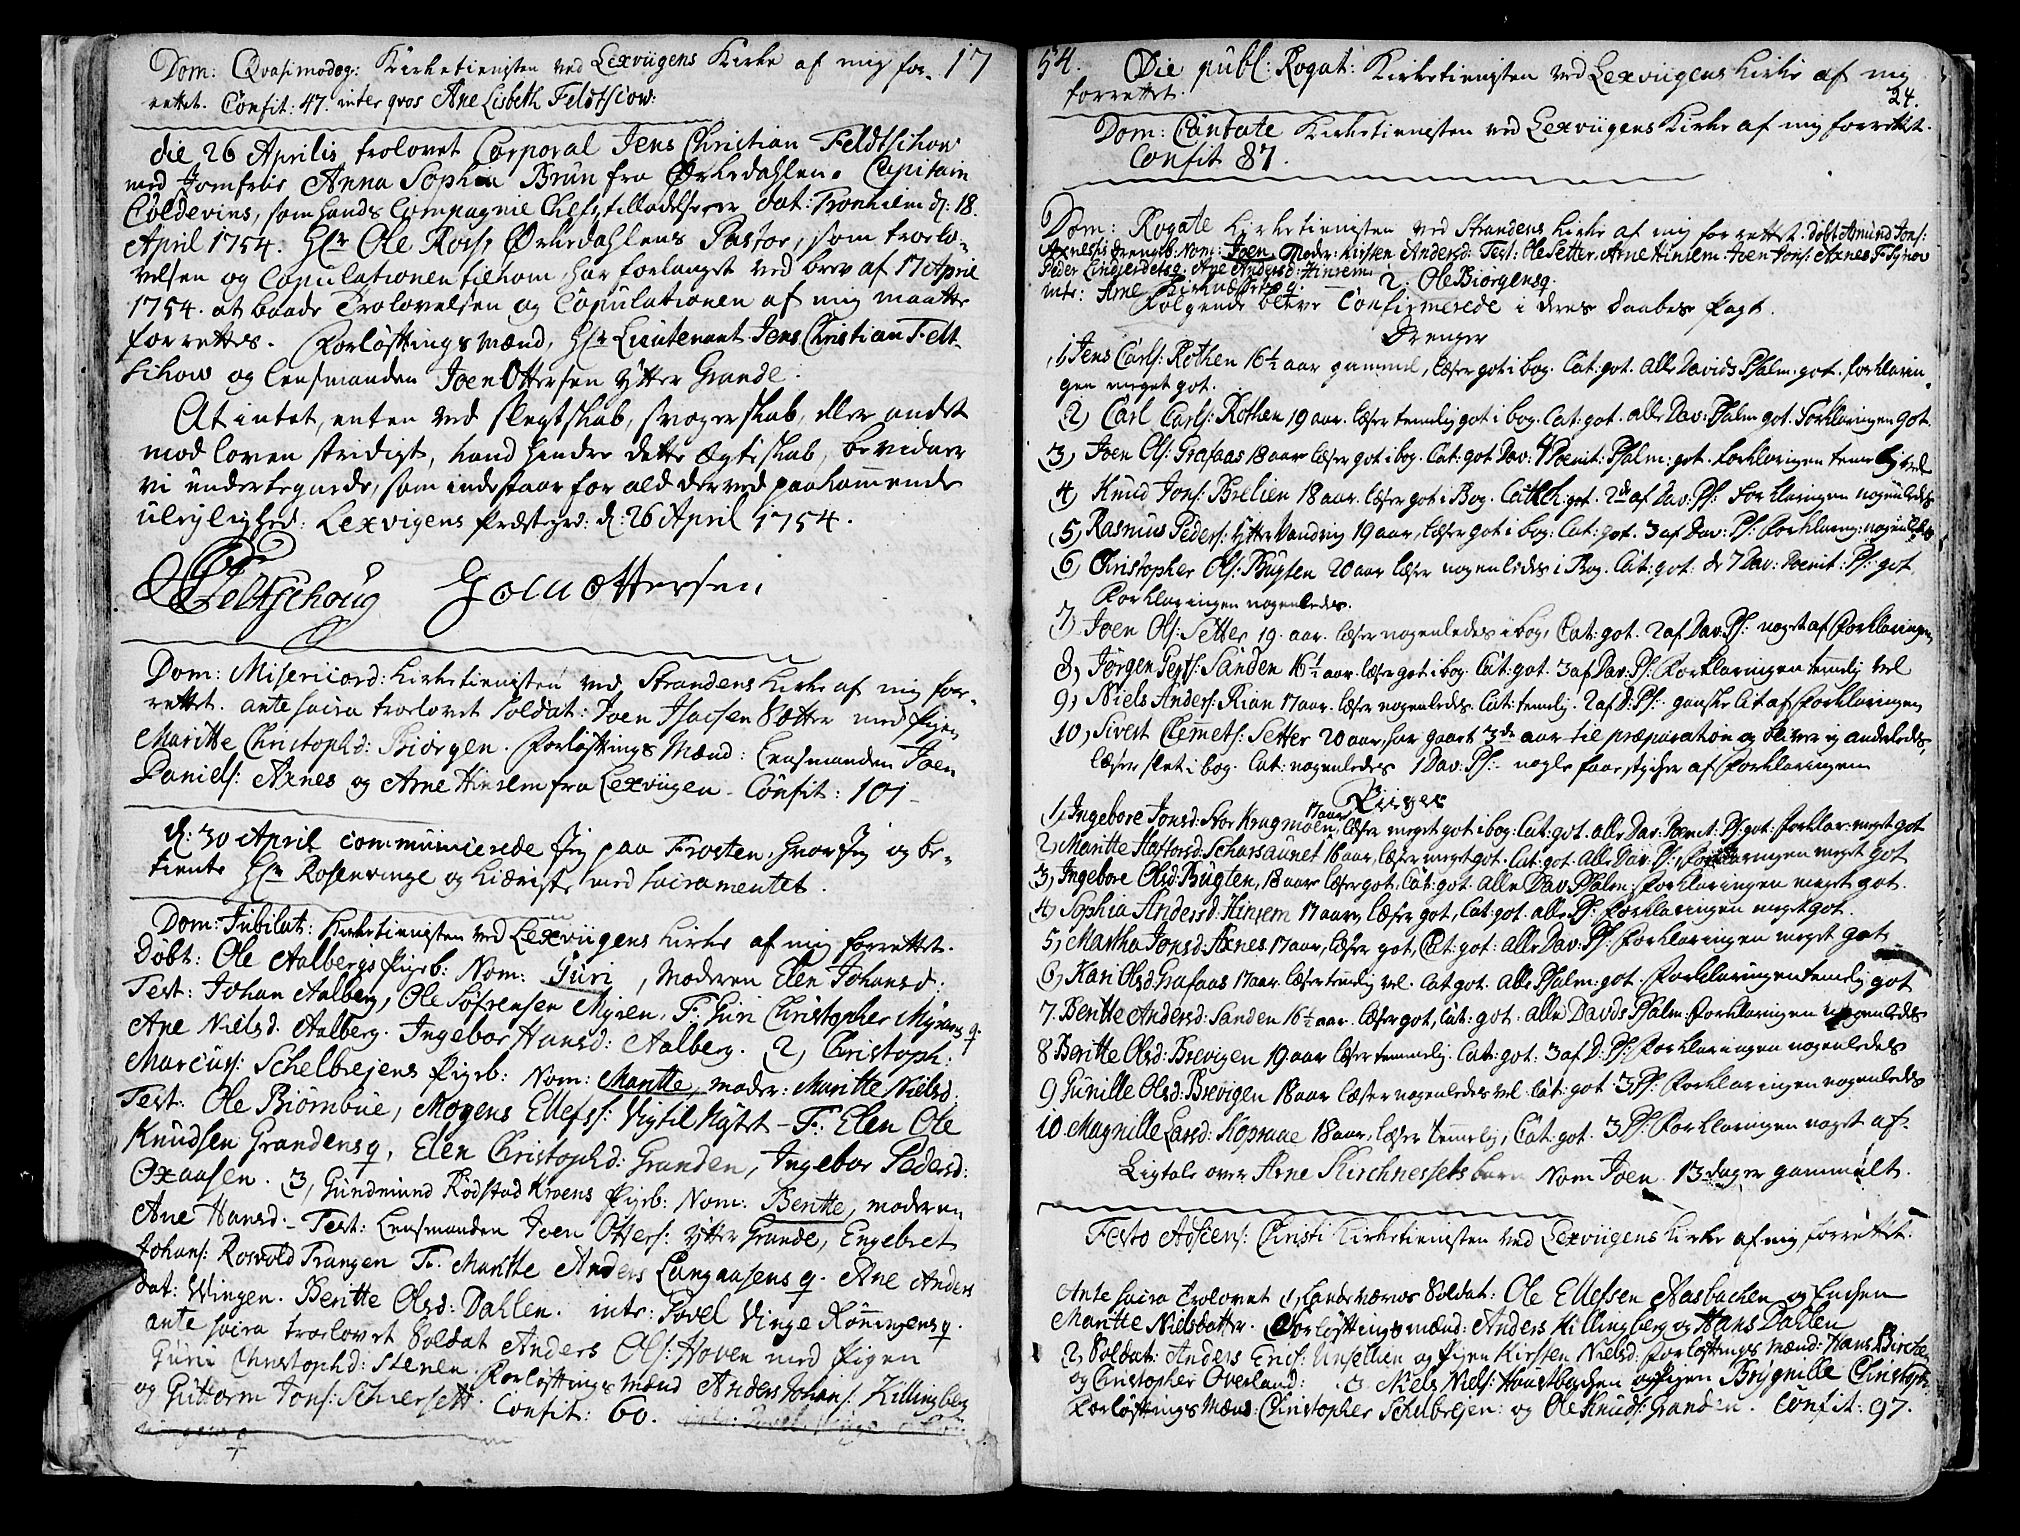 Dom: Qvasimodog: Kirketienisten ved Lexviigens Kirke af mig for- 17
rettet. Confit: 47. inter qvos Ane Lisbeth Feldtschow:
die 26 Aprilis trolovet Corporal Jens Christian Feldtschow
med Jomfrue Anna Sophia Brun fra Ørkedahlen. Capitain
Coldevins, som hands Compagnie Chefs tilladelse er dat: Tronhiem d: 18.
April 1754. Hr Ole Rois, Ørkedahlens Pastor, som troelo-
velsen og Copulationen tilkom, har forlanget ved brev af 17 April
1754. at baade Trolovelsen og Copulationen af mig maatte
forrettes. Forløftnings Mænd, Hr Lieutenant Jens Christian Felt-
schow og Lensmanden Joen Ottersen Ytter Grande.
At intet, enten ved slegtskab, svogerskab, eller andet
mod loven stridigt, kand hindre dette Egteskab, bevidner
vi undertegnede, som indestaar for ald derved paakommende
uleylighed. Lexvigens Præstegrd: d: 26 April 1754.
Feltschoug Joen Ottersen
Dom: Misericord: Kirketienisten ved Strandens Kirke af mig for-
rettet. ante sacra troelovet Soldat: Joen Isacsen Sætter med Pigen
Maritte Christophd: Biørgen. Forløftnings Mænd: Lensmanden Joen
Daniels: Axnes og Arne Hinsem fra Lexviigen - Confit: 101 -
d: 30 April communicerede Jeg paa Frosten, hvor Jeg og be-
tiente Hr Rosenvinge og Kiæriste med Sacramentet.
Dom: Jubilat: Kirketienisten ved Lexviigens Kirke af mig forrettet.
Døbt: Ole Aalbergs Pigeb: Nom: Guri, Moderen Elen Johansd.
Test: Johan Aalberg, Ole Søfrensen Myren, F. Guri Christopher Myrens q.
Ane Nielsd. Aalberg. Ingebor Hansd: Aalberg. 2, Christoph.
Marcus: Schelbreiens Pigeb: Nom: Maritte, moder: Maritte Nielsd:
Test: Ole Biørnbue, Mogens Ellefs: Vigtil - F. Elen Ole
Knudsen Grandens q, Elen Christophd: Granden, Ingebor Pedersd:
Oxaasen. 3, Gundmund Rødstad Kroens Pigeb: Nom: Beritte, moderen
Ane Hansd - Test: Lensmanden Joen Otters: Ytter Grande, Engebret
Johans: Rosvold Trangen F. Maritte Anders Langaasens q. Ane Anders
dat: Wingen. Beritte Olsd: Dahlen. intr: Povel Vinge Rønningens q.
ante sacra troelovet Soldat Anders Ols: Hoven med Pigen
Guri Christophd: Stenen. Forløftnings Mænd Anders Johans: Killingberg
og Guttorm Jons: Schiersett. Confit: 60.
54. Die publ: Rogat: Kirketienisten ved Lexviigens Kirke af mig
forrettet. 24.
Dom: Cantate Kirketienisten ved Lexviigens Kirke af mig forrettet.
Confit 87.
Dom: Rogate Kirketienisten ved Strandens Kirke af mig forrettet. døbt Amund Jons:
Axnesis drengeb: Nom: Joen Moder: Kirsten Andersd: Test: Ole Setter. Arne Hinsem. Joen Jons: Axnes F.
Peder q: Ane Andersd: Hinsem
intr: Arne Kirknessets q. - 2, Ole Biørgens q.
Følgende bleve Confirmerede i deres daabes Pagt.
Drenger
1, Jens Carls: Rothen 16½ aar gammel, læser got i bog. Cat: got. alle Davids Psalm: got. forklarin-
gen meget got.
2, Carl Carls: Rothen 19 aar. læser temelig got i bog. Cat: got. alle Dav: Psalm got. Forklaringen got.
3, Joen Ols: Grasaas 18 aar læser got i bog. Cat: got Dav: Poenit: Psalm: got. forklaringen temelig vel
4, Knud Jons: Brelien 18 aar. læser got i Bog. Catech: got. 2de af Dav: Ps: Forklaringen nogenledes
5, Rasmus Peders: Ytter Vandvig 19 aar, læser got i bog: Cat: got. 3 af Dav: Ps: Forklaring: nogenledes
6, Christopher Ols: Bugten 20 aar læser nogenledes i Bog. Cat: got: de 7 Dav: Poenit: Ps: got.
Forklaringen nogenledes.
7, Joen Ols: Setter 19. aar. læser nogenledes i bog, Cat: got. 2 af Dav: Ps: noget af Forklaringen
8, Jørgen Pers: Sanden 16½ aar. læser got i bog. Cat: got. 3 af Dav: Ps: Forklaringen temelig vel
9, Niels Anders: Rian 17 aar. læser nogenledes. Cat: temelig. 2 af D: Ps: ganske lit af Forklaringen
10, Sivert Clemets: Setter 20 aar, har gaaet 3de aar til præparation og bliver ej anderledes,
læser slet i bog. Cat: nogenledes 1 Dav: Ps: nogle faa stycker af Forklaringen
Piger
1, Ingebore Jonsd: Stor Kragmoen, 17 aar læser meget got i bog: Cat: got. alle Dav: Poenit: Ps: got: forklar: meget got
2, Maritte Haftorsd: Scharsaunet 16 aar, læser meget got. Cat: got. alle Dav: Ps: Forklaringen meget got
3, Ingebore Olsd: Bugten, 18 aar læser got, Cat: got. alle Dav Psalm: Forklaringen meget got.
4, Sophia Andersd: Hinsem 17 aar, læser got, Cat: got. alle Ps: Forklaringen meget got.
5, Martha Jonsd: Axnes 17 aar, læser got, Cat: got: alle Dav: Ps: Forklaringen meget got
6, Kari Olsd: Grasaas 17 aar. læser temelig vel. Cat got. alle Psalm: got. Forklaringen temelig got
7. Beritte Andersd: Sanden 16½ aar. læser got, Cat: got. alle Davids Psalm: Forklaringen nogenledes
8 Beritte Olsd: Brevigen 19 aar læser temmelig. Cat: got: 3 af D: Ps: Forklaringen nogenledes
9, Gunille Olsd: Brevigen 18 aar læser nogenledes vel. Cat: got. 3 Ps: Forklaringen nogenledes
10. Magnille Larsd: Kopraae 18 aar, læser temmelig, Cat: got. 3 Ps: Forklaringen noget af.
Ligtale over Arne Kirchnessets barn Nom Joen 13 dager gammelt.
Festo Adscens: Christi Kirketienisten ved Lexviigens Kirke af mig forrettet.
Ante sacra Trolovet 1, Landeværns Soldat: Ole Ellefsen Aasbachen og Encken
Maritte Nielsdatter. Forløftningsmænd: Anders Killingberg og Hans Dahlen
2, Soldat: Anders Erics: og Pigen Kirsten Nielsd: Forløftnings Mænd: Hans
og Christopher Overland: 3 Niels Niels: Haastbachen og Pigen Brygnille Christoph:
Forløftnings Mænd: Christopher Schelbrejen: og Ole Knuds: Granden. Confit: 97.